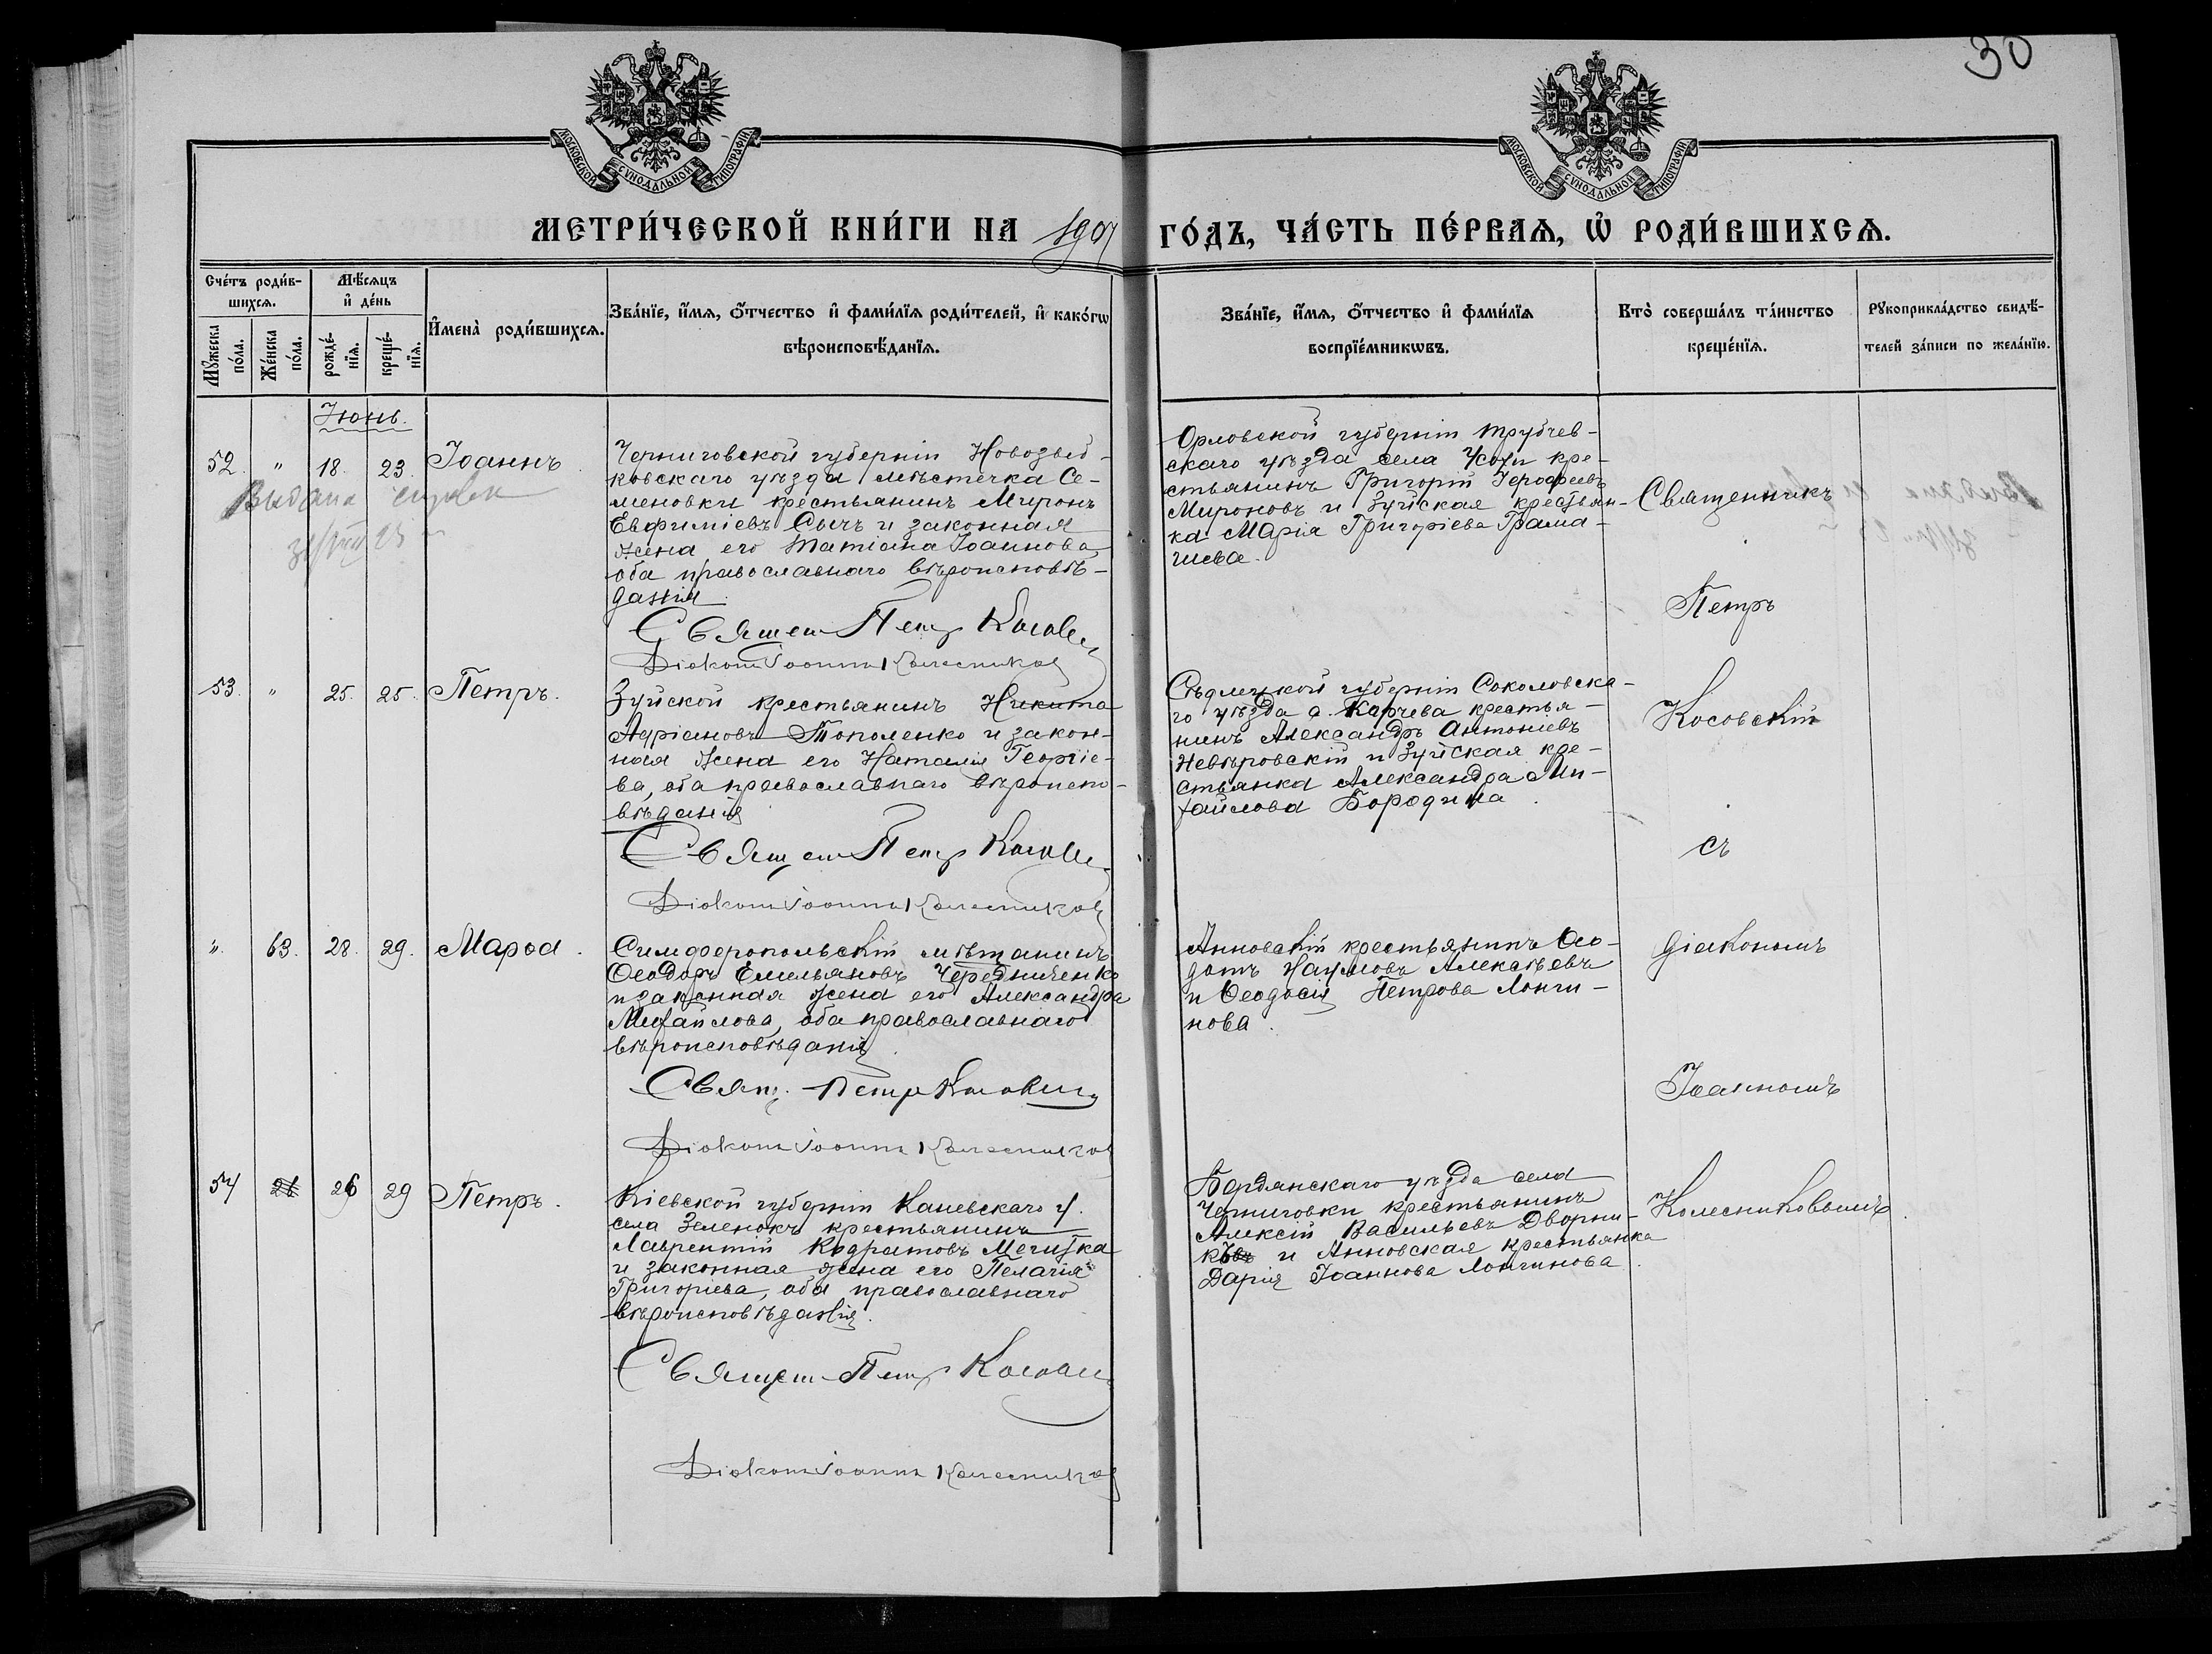 30
МОСКОВСКОЙ СУНОДАЛЬНОЙ ТИПОГРАФІИ
МОСКОВСКОЙ СУНОДАЛЬНОЙ ТИПОГРАФІИ
МЕТРИ́ЧЕСКОЙ КНИ́ГИ НА 1907 ГО́ДЪ, ЧА́СТЬ ПЕ́РВАѦ, Ѡ РОДИ́ВШИХСѦ.
Сче́тъ роди́в-
шихсѧ.
Мꙋжеска по́ла.
Же́нска по́ла.
Мѣ́сѧцъ
и де́нь
рожде́-
нїѧ.
креще́-
нїѧ.
И҆мена̀ роди́вшихсѧ.
Зва́нїе, и҆́мѧ, ѻ҆́тчество и҆ фами́лїѧ роди́телей, и҆ како́гѡ
вѣроисповѣ́данїѧ.
Зва́нїе, и҆́мѧ, ѻ҆́тчество и҆ фами́лїѧ
воспрїе́мникѡвъ.
Кто̀ соверша́лъ та́инство
креще́нїѧ.
Рꙋкоприкла́дство свидѣ́-
телей за́писи по жела́нїю.
Іюнь.
52. " 18. 23. Іоаннъ.
Выдана
Черниговской губерніи Новозыб-
ковскаго уѣзда мѣстечка Се-
меновки крестьянинъ Миронъ
Евфиміевъ Сычъ и законная
жена его Татіана Іоаннова,
оба православнаго вѣроисповѣ-
данія.
Священ Петръ Косовск
Діаконъ Іоаннъ Колесниковъ
Орловской губерніи Трубчев-
скаго уѣзда села Усохи кре-
стьянинъ Григорій Іерофеевъ
Мироновъ и Зуйская крестьян-
ка Марія Григоріева Грама-
Священникъ
Петръ
53. " 25. 25. Петръ.
Зуйской крестьянинъ Никита
Адріановъ Тополенко и закон-
ная жена его Наталія Георгіе-
ва, оба православнаго вѣроиспо-
вѣданія
Священ Петръ Косовск
Діаконъ Іоаннъ Колесниковъ
Сѣдлецкой губерніи Соколовска-
го уѣзда с. Карчева крестья-
нинъ Александръ Антоніевъ
Невѣровскій и Зуйская кре-
стьянка Александра Ми-
хайлова Бородина.
Косовскій
съ
" 63. 28. 29. Марѳа.
Симферопольскій мѣщанинъ
Ѳеодоръ Емельяновъ Чередниченко
и законная жена его Александра
Михайлова, оба православнаго
вѣроисповѣданія.
Свящ. Петръ Косовск
Діаконъ Іоаннъ Колесниковъ
Анновскій крестьянинъ Ѳео-
дотъ Наумовъ Алексѣевъ
и Ѳеодосія Петрова Лонги-
нова.
діакономъ
Іоанномъ
54 26 26 29 Петръ.
Кіевской губерніи Каневскаго у.
села Зеленокъ крестьянинъ
Лаврентій Кодратовъ
и законная жена его Пелагія
Григоріева, оба православнаго
вѣроисповѣданія.
Священ Петръ Косовск
Діаконъ Іоаннъ Колесниковъ
Бердянскаго уѣзда села
Черниговки крестьянинъ
Алексій Васильевъ Дворни-
ковъ и Анновская крестьянка
Дарія Іоаннова Лонгинова.
Колесниковымъ.